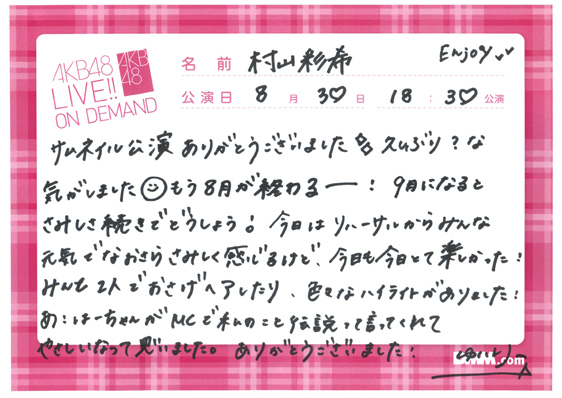 AKB48
LIVE!!
ON DEMAND
AKB
48
名前 村山彩希
Enjoy
公演日 8月30日 18:30公演
サムネイル公演 ありがとうございました 久しぶり?な
気がしました もう8月が終わるー! 9月になると
さみしさ続きでどうしよう! 今日はリハーサルからみんな
元気でなおさらさみしく感じるけど、今日も今日とて楽しかった!
みんな2人でおさげヘアしたり、色々なハイライトがありました!
あ!はーちゃんがMCで私のこと伝説って言ってくれて
やさしいなって思いました。ありがとうございました!
.com
ゆいりー